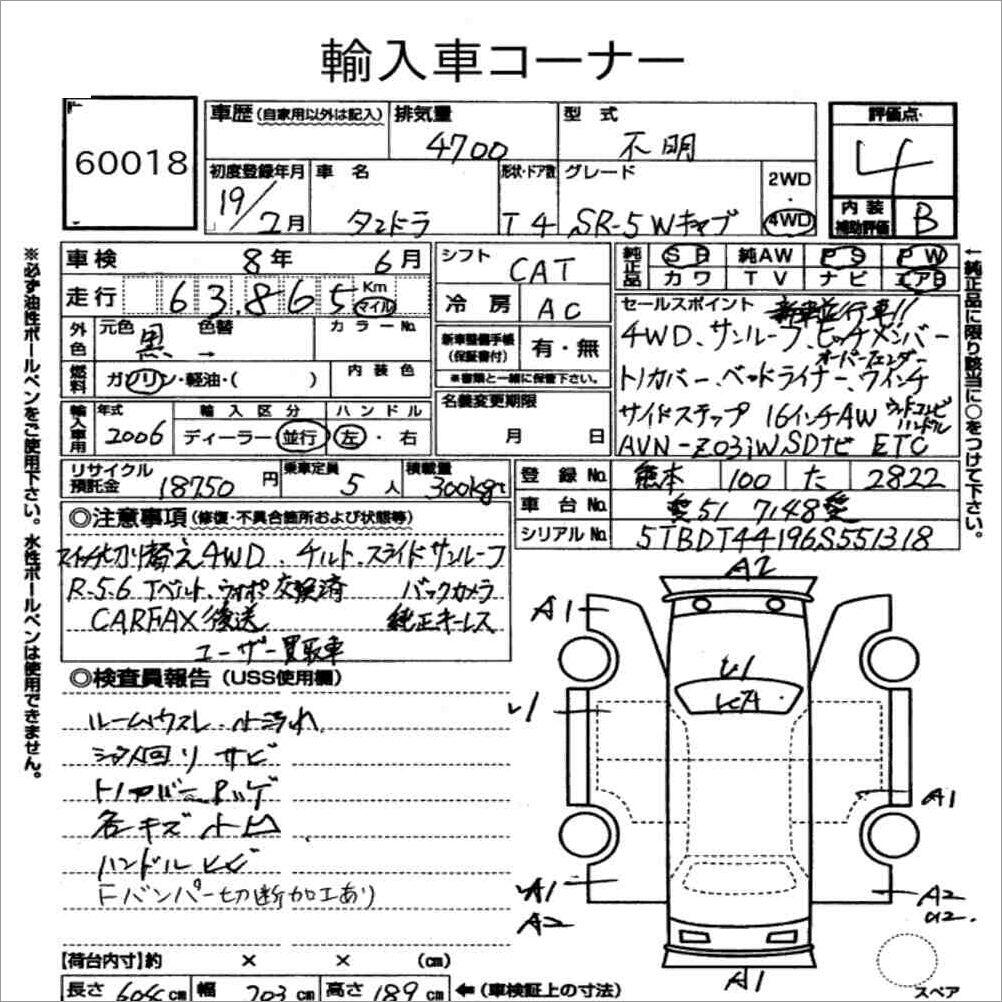 輸入車コーナー
60018
車歴 (自家用以外は記入) 排気量 4700 型式 不明
評価点 4
初度登録年月 19/2月 車名 タンドラ 形状・ドア数 T 4 グレード SR-5 Wキャブ 2WD・4WD
内装補助評価 B
車検 8年 6月 シフト CAT
走行 63,865 Km マイル 冷房 AC
純正品 SR 純AW PS PW
カワ TV ナビ エアB
外色 元色 黒 色替 → カラーNo.
新車整備手帳(保証書付) 有・無
※書類と一緒に保管下さい。
燃料 ガソリン・軽油・( ) 内装色
名義変更期限 月 日
セールスポイント 新車並行車!!
4WD、サンルーフ、ヒッチメンバー
オーバーフェンダー
トノカバー、ベッドライナー、ウインチ
サイドステップ 16インチAW ウッドコンビハンドル
AVN-Z03iW SDナビ ETC
輸入車用 年式 2006 輸入区分 ディーラー・並行 ハンドル 左・右
リサイクル預託金 18750円 乗車定員 5人 積載量 300kg
登録No. 熊本 100 た 2822
車台No. 愛51 7148愛
シリアルNo. 5TBDT44196S551318
◎注意事項 (修復・不具合箇所および状態等)
スイッチ切り替え4WD、チルト、スライドサンルーフ
R-5-6 Tベルト、ウォポ交換済 バックカメラ
CARFAX後送 純正キーレス
ユーザー買取車
◎検査員報告 (USS使用欄)
ルームウスレ・小汚れ
シタ回リ サビ
トノカバー
各キズ 小凹
ハンドルヒビ
Fバンパー切断加工あり
A2
A1
U1
A1
A1
A2
A2
A1
スペア
【荷台内寸】約 × × (cm)
長さ 604cm 幅 203cm 高さ 189cm ←(車検証上の寸法)
※必ず油性ボールペンをご使用下さい。水性ボールペンは使用できません。
↑純正品に限り該当に○をつけて下さい。